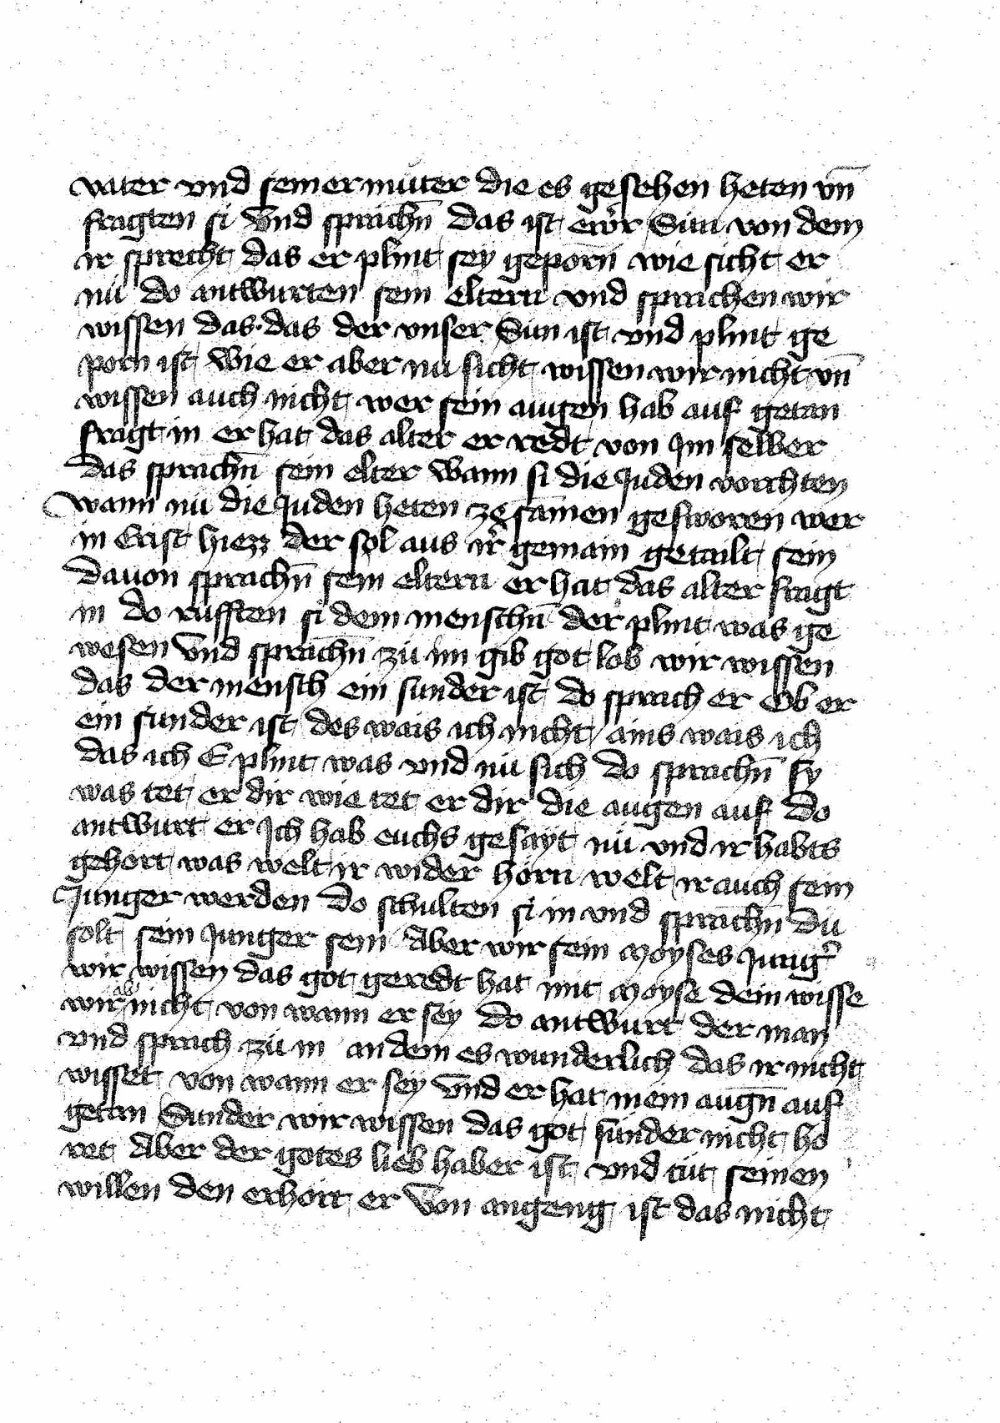 vater vnd seiner muter die es gesehen heten vn̄
fragten si Vnd sprachn̄ das ist ewr̄ Sun von dem
ir sprecht das er plint sey geporn̄ wie sicht er
nu do antwurten sein eltern vnd sprachen wir
wissen das·das der vnser Sun ist vnd plint ge
porn ist Wie er aber nu sicht wissen wir nicht vn̄
wissen auch nicht wer sein augen hab auf getan
fragt in er hat das alter er redt von Im selber
das sprachn̄ sein elter wann si die Juden vorchten
wann nu die Juden heten zesamen gesworen wer
in Crist hiezz der sol aus ir̄ gemain getailt sein
dauon sprachn̄ sein eltern er hat das alter fragt
in do rufften si dem menschn̄ der plint was ge
wesen Vnd sprachn̄ zu im gib got lob wir wissen
das der mensch ein sunder ist do sprach er Ob er
ein sunder ist des wais ich nicht / ains wais ich
das ich E plint was vnd nu sich do sprachn̄ sy
was tet er dir wie tet er dir die augen auf Do
antwurt er Ich hab euchs gesayt nu vnd ir habts
gehort was welt ir wider horn welt ir auch sein
Junger werden Do schulten si in vnd sprachn̄ du
solt sein Junger sein Aber wir sein Moyses Jung̉
wir wissen das got geredt hat mit Moyse dein wisse
wir nicht von wann er sey Do antwurt der man
vnd sprach zu in an dem es wunderlich das ir nicht
wisset von wann er sey Vnd er hat mein augn̄ auf
getan Sunder wir wissen das got sunder nicht ho
ret Aber der gotes lieb haber ist vnd tut seinen
willen den erhort er Von angeng ist das nicht